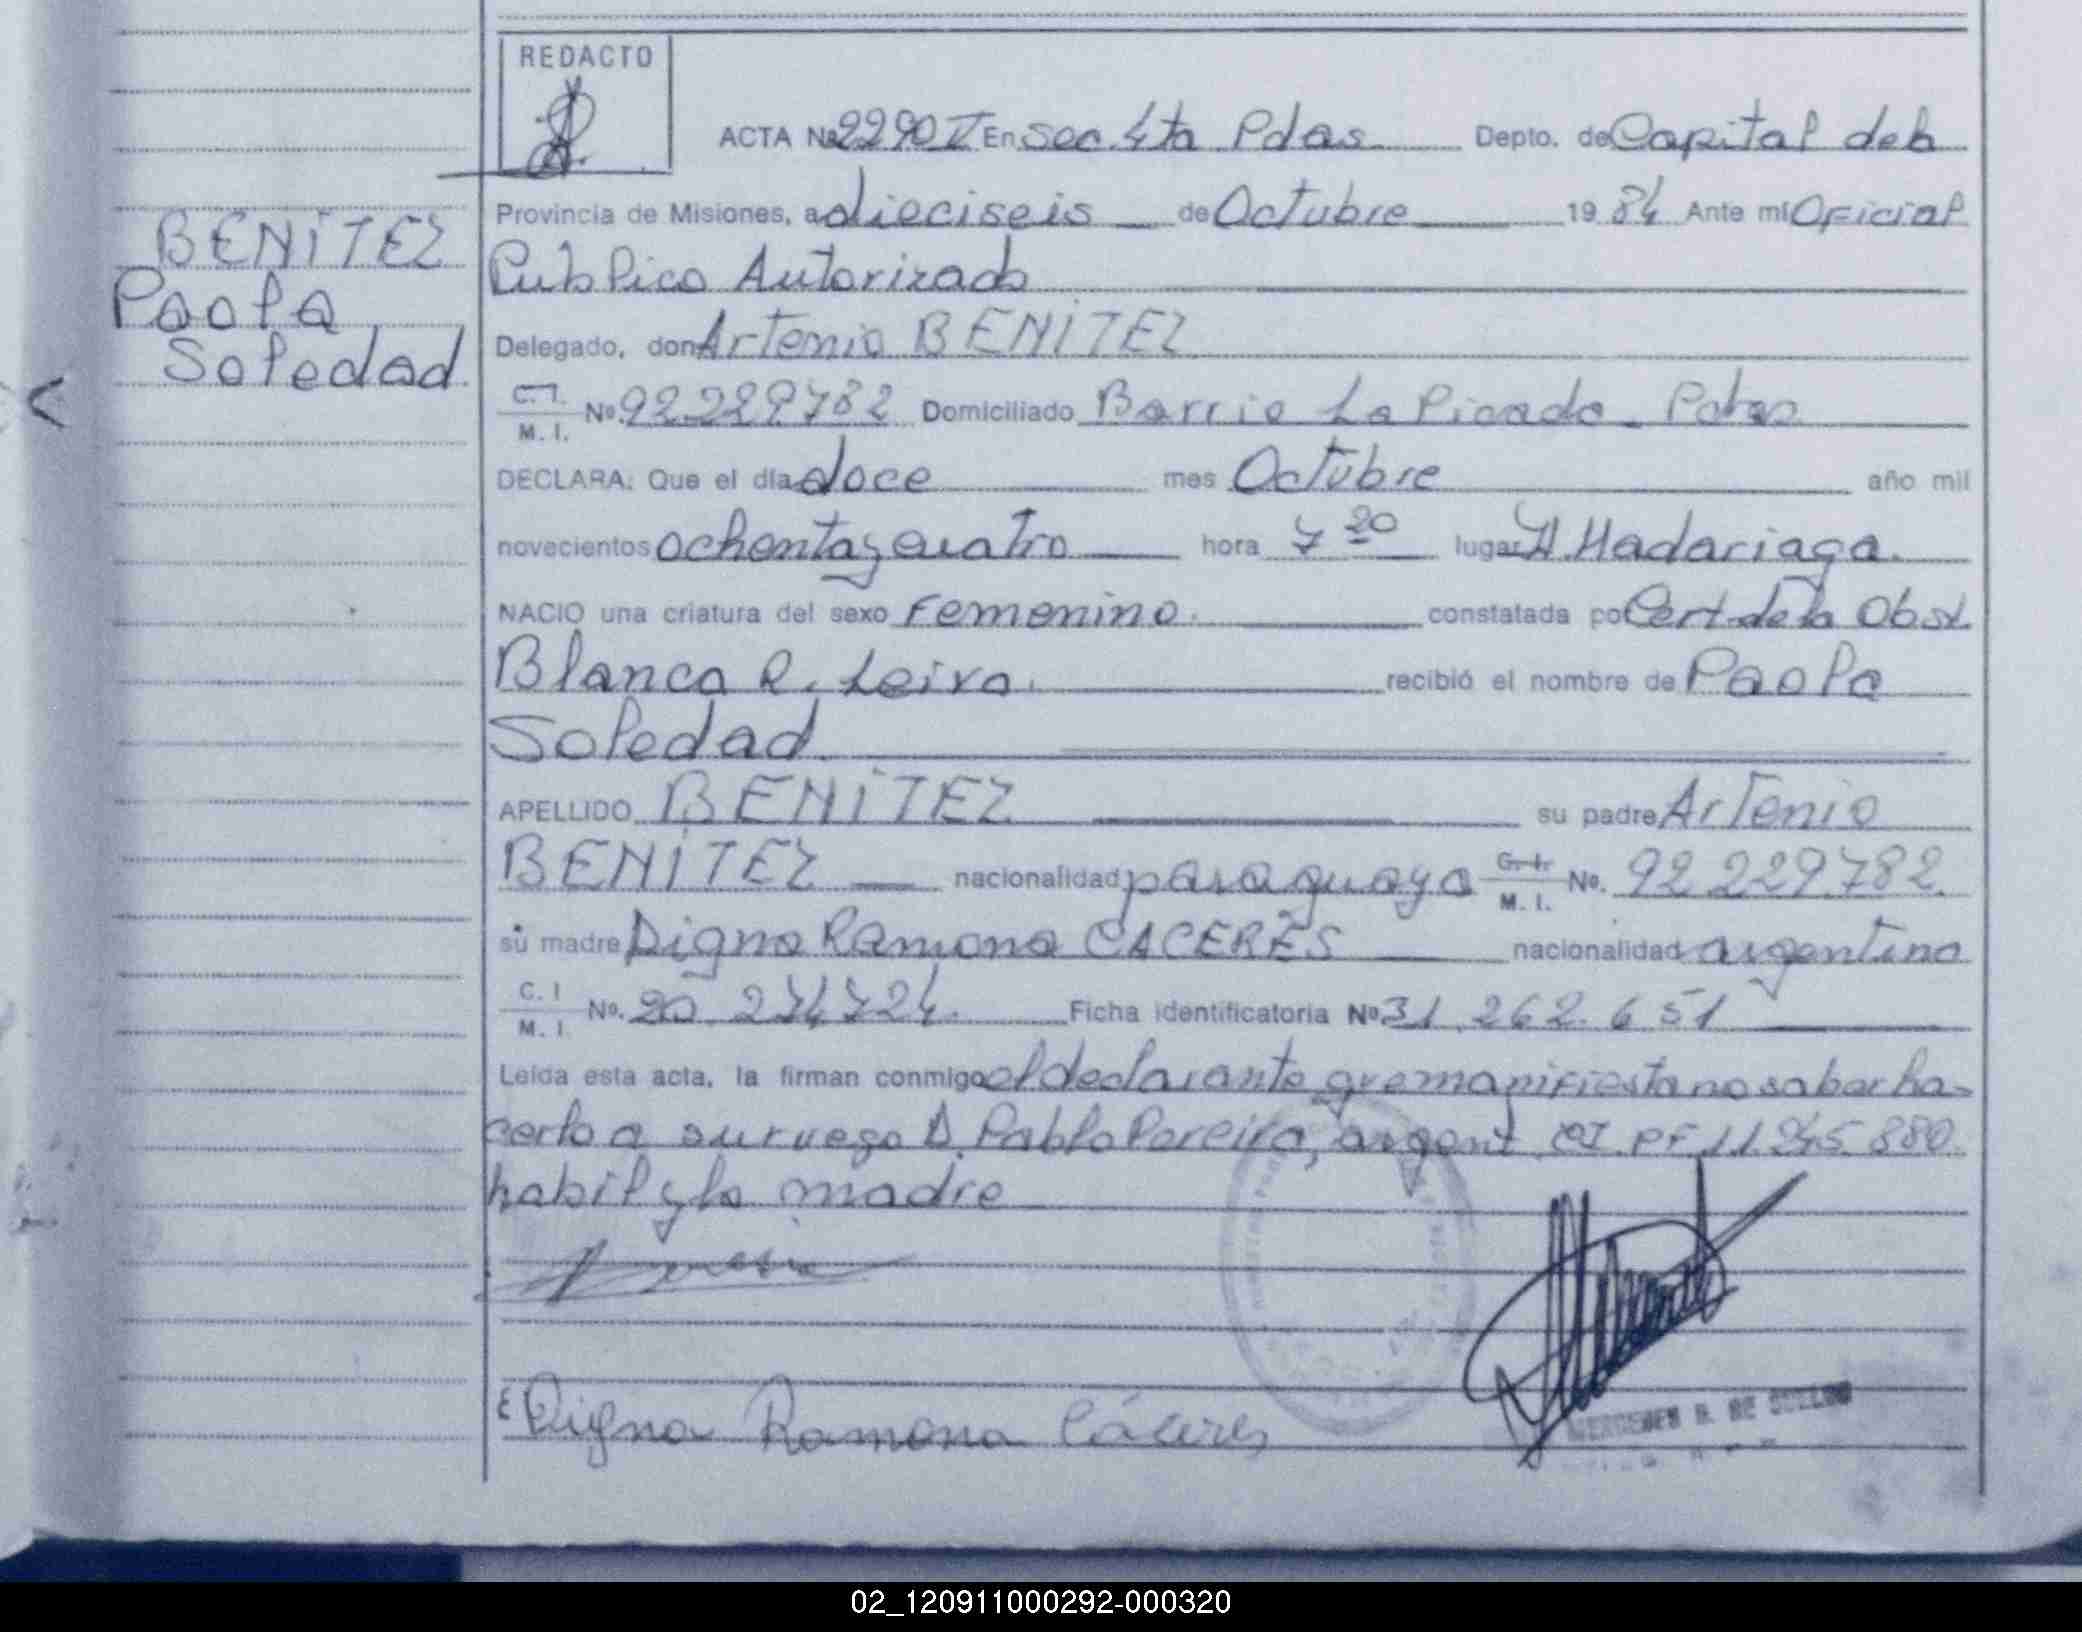 REDACTO
ACTA Nº 2290 V En Sec. 4ta Pdas. Depto. de Capital de la
Provincia de Misiones, a dieciseis de Octubre 19 84 Ante mí Oficial
Publico Autorizado
BENÍTEZ
Paola
Soledad
Delegado, don Artemio BENÍTEZ
C. I. M. I. Nº 92.229.782 Domiciliado Barrio La Picada - Pdas
DECLARA: Que el día doce mes Octubre año mil
novecientos ochenta y cuatro hora 7 20 lugar H. Madariaga.
NACIO una criatura del sexo Femenino. constatada por Cert. de la Obst.
Blanca R. Leiva. recibió el nombre de Paola
Soledad
APELLIDO BENÍTEZ su padre Artenio
BENÍTEZ nacionalidad paraguaya C. I. M. I. Nº. 92.229.782.
su madre Digna Ramona CACERES nacionalidad argentina
C. I M. I. Nº. 20.274.724. Ficha identificatoria Nº 31.262.651
Leída esta acta, la firman conmigo el declarante que manifiesta no saber ha-
cerlo a su ruego D. Pablo Pereira, argent. CI. PF 11.245.880.
habil y la madre
Digna Ramona Cáceres
02_120911000292-000320